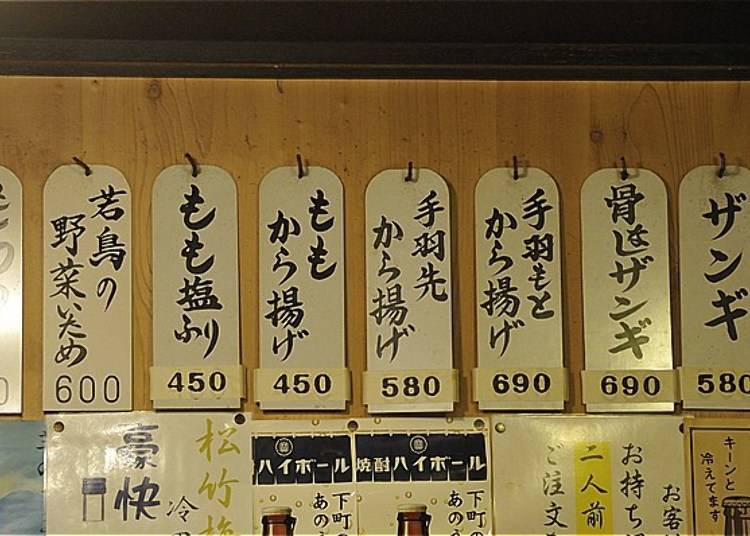 ザンギ
580
骨なしザンギ
690
手羽もと
から揚げ
690
手羽先
から揚げ
580
もも
から揚げ
450
もも塩ふり
450
若鳥の
野菜いため
600
0
キーンと
冷えてます
お客
お持ち
二人前
ご注文
焼酎ハイボール
下町の
あのう
ハイボール
下町の
あのう
松竹梅
豪快
冷